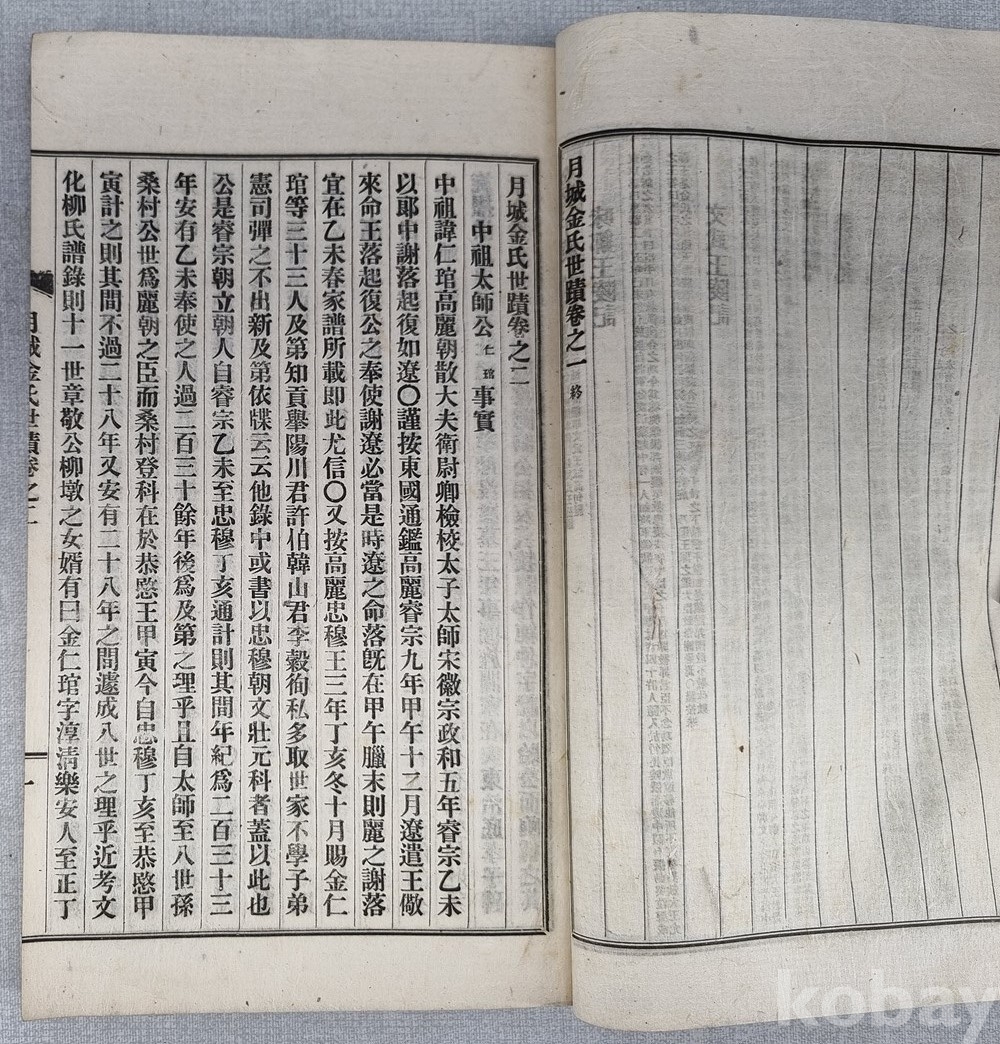 月城金氏世蹟卷之一 終
月城金氏世蹟卷之二
中祖太師公 仁琯 事實
中祖諱仁琯高麗朝散大夫衛尉卿檢校太子太師宋徽宗政和五年睿宗乙未
以郞中謝落起復如遼〇謹按東國通鑑高麗睿宗九年甲午十二月遼遣王儆
來命王落起復公之奉使謝遼必當是時遼之命落旣在甲午臘末則麗之謝落
宜在乙未春家譜所載卽此尤信〇又按高麗忠穆王三年丁亥冬十月賜金仁
琯等三十三人及第知貢擧陽川君許伯韓山君李穀徇私多取世家不學子弟
憲司彈之不出新及第依牒云云他錄中或書以忠穆朝文壯元科者蓋以此也
公是睿宗朝立朝人自睿宗乙未至忠穆丁亥通計則其間年紀爲二百三十三
年安有乙未奉使之人過二百三十餘年後爲及第之理乎且自太師至八世孫
桑村公世爲麗朝之臣而桑村登科在於恭愍王甲寅今自忠穆丁亥至恭愍甲
寅計之則其間不過二十八年又安有二十八年之間遽成八世之理乎近考文
化柳氏譜錄則十一世章敬公柳墩之女婿有曰金仁琯字淳淸樂安人至正丁
月城金氏世蹟卷之二
一
kobay